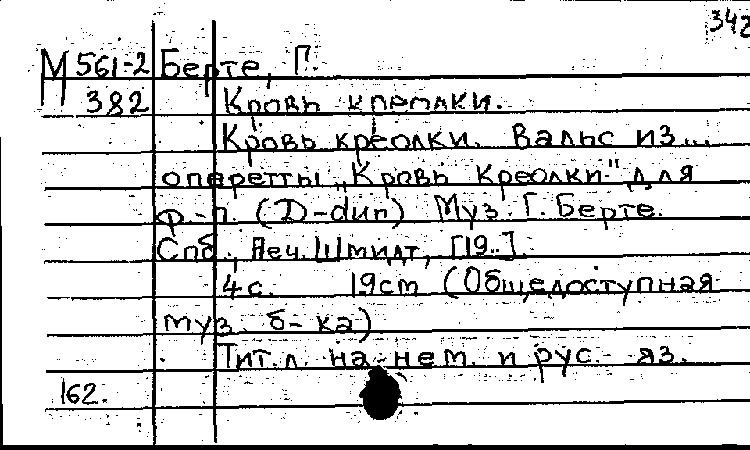 342
М 561-2 Берте, Г.
382 Кровь креолки.
Кровь креолки. Вальс из...
оперетты „Кровь Креолки" для
ф.-п. (D-dur) Муз. Г. Берте.
Спб., Печ. Шмидт, [19..].
4 с. 19 cm (Общедоступная
муз. б-ка)
Тит. л. на нем. и рус. яз.
162.